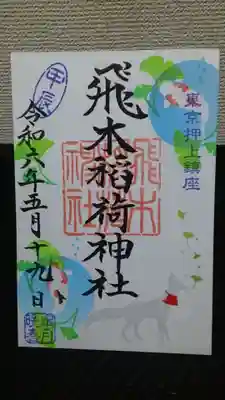 東京押上鎮座
飛木稲荷神社
飛木
稲荷
神社
甲辰
令和六年五月十九日